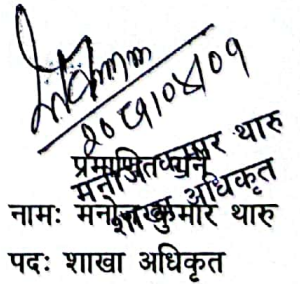 प्रमाणित गर्ने
मनोज कुमार थारु
शाखा अधिकृत
नामः मनोज कुमार थारु
पदः शाखा अधिकृत